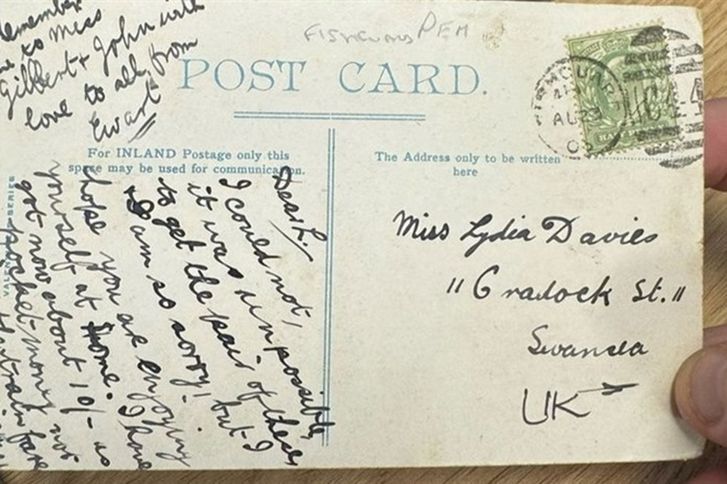 FISHGUARD PEM
POST CARD.
For INLAND Postage only this
space may be used for communication.
The Address only to be written
here
Dear L.
I could not,
it was unpossible,
to get the pair of these
but I
am so sorry!
I hope you are enjoying
yourself at home. I have
got now about 10/- as
pocket-money not
train fare
remember
to Miss
Gilbert & John with
love to all from
Ewart
Miss Lydia Davies
"Cradock St."
Swansea
UK
AU 23